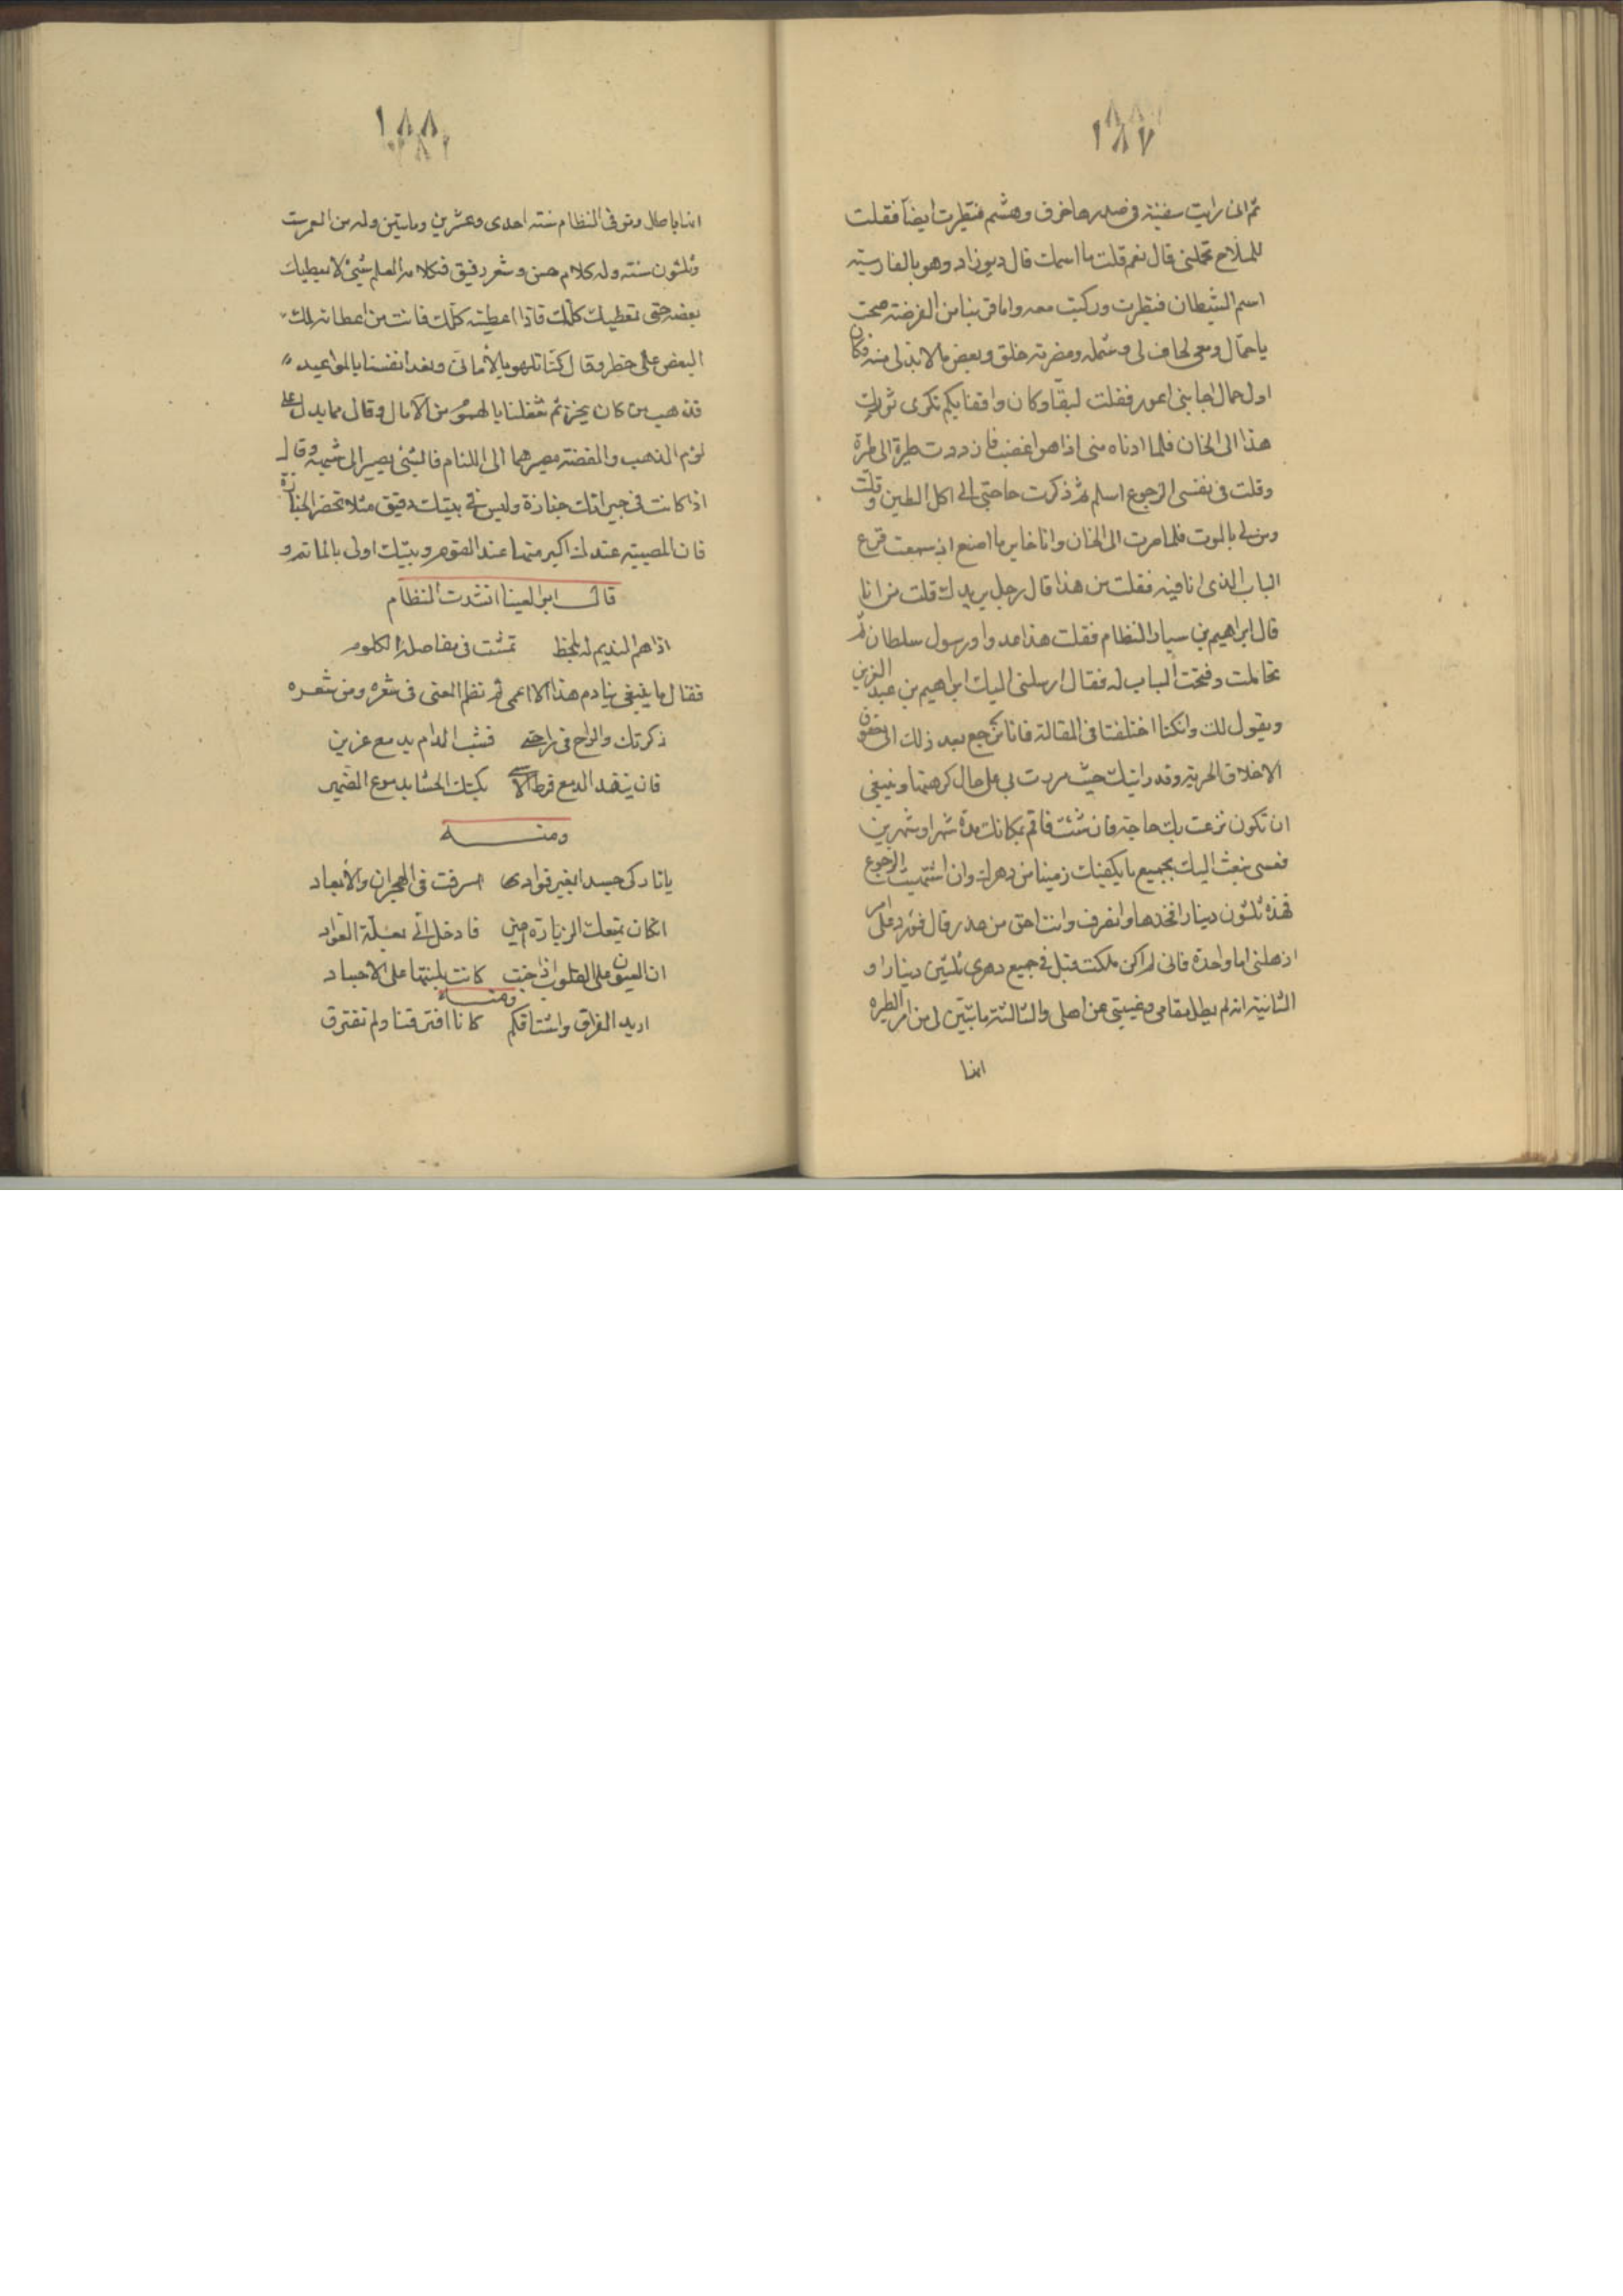 ١٨٧
ثم اني رايت سفينة في صدرها خرق وهشم فتطيرت ايضا فقلت
للملاح تحملني قال نعم قلت ما اسمك قال ديوزاد وهو بالفارسيه
اسم الشيطان فتطيرت وركبت معه واما قربنا من الفرضة صحت
يا حمال ومعي لحاف لي وشمله ومضربه خلق وبعض ما لابد لي منه فكان
اول حمال اجابني اعور فقلت لبقار كان واقفا بكم تكرى ثورك
هذا الى الخان فلما ادناه مني اذا هو اعضب فازددت طيرة الى طيرة
وقلت في نفسي الرجوع اسلم ثم ذكرت حاجتي الى اكل الطين وقلت
ومن لي بالموت فلما صرت الى الخان وانا حاير ما اصنع اذ سمعت قرع
الباب الذي انا فيه فقلت من هذا قال رجل يريدك قلت من انا
قال ابراهيم بن سيار النظام فقلت هذا عدو او رسول سلطان ثم
تحاملت وفتحت الباب له فقال ارسلني اليك ابراهيم بن عبد العزيز
ويقول لك وان كنا اختلفنا في المقالة فانا نرجع بعد ذلك الى حقوق
الاخلاق الحرية وقد رايتك حيث مررت بي على حال كرهتها وينبغي
ان تكون نزعت بك حاجة فان شئت فاقم بمكانك مدة شهر او شهرين
فعسى نبعث اليك بجميع ما يكفيك زمينا من دهرك وان اشتهيت الرجوع
فهذه ثلثون دينارا فخذها وانصرف وانت احق من عذر قال فورد على امر
اذهلني اما واحدة فاني لم اكن ملكت قبل في جميع دهري ثلثين دينارا و
الثانية انه لم يطل مقامي وغيبتي عن اهلي والثالثة ما بين لي من امر الطيره
انها
١٨٨
انها باطل وتوفي النظام سنة احدى وعشرين ومايتين وله من العمر ست
وثلثون سنة وله كلام حسن وشعر رقيق فكلامه العلم شئ لا يعطيك
بعضه حتى تعطيك كلك فاذا اعطيته كلك فانت من اعطائه لك
البعض على خطر وقال كنا نلهو بالأماني ونعد انفسنا بالمواعيد
فذهب من كان ينجز ثم شغلنا بالهموم من الآمال وقال مما يدل على
لوم الذهب والفضة مصيرهما الى اللئام فالشئ يصير الى شبهه وقال
اذا كانت في جيرانك جنازة وليس في بيتك دقيق مثلا تحضر الجنازة
فان المصيبة عندك اكبر منها عند القوم وبيتك اولى بالماتم و
قال ابو العينا انشدت النظام
اذا هم النديم له بلحظ تمشت في مفاصله الكلوم
فقال ما ينبغي ينادم هذا الا اعمى ثم نظم المعنى في شعره ومن شعره
ذكرتك والراح في راحتي فشبت المدام بدمع غزير
فان ينفد الدمع فرط الاسى بكتك الحشا بدموع الضمير
ومنه
يا تاركي جسدا بغير فوادي اسرفت في الهجران والأبعاد
ان كان يمنعك الزيارة اعين فادخل الي بعلة العواد
ان العيون على القلوب اذا جنت كانت بليتها على الاجساد
ومنه
اريد الفراق واشتاقكم كانا افترقنا ولم نفترق